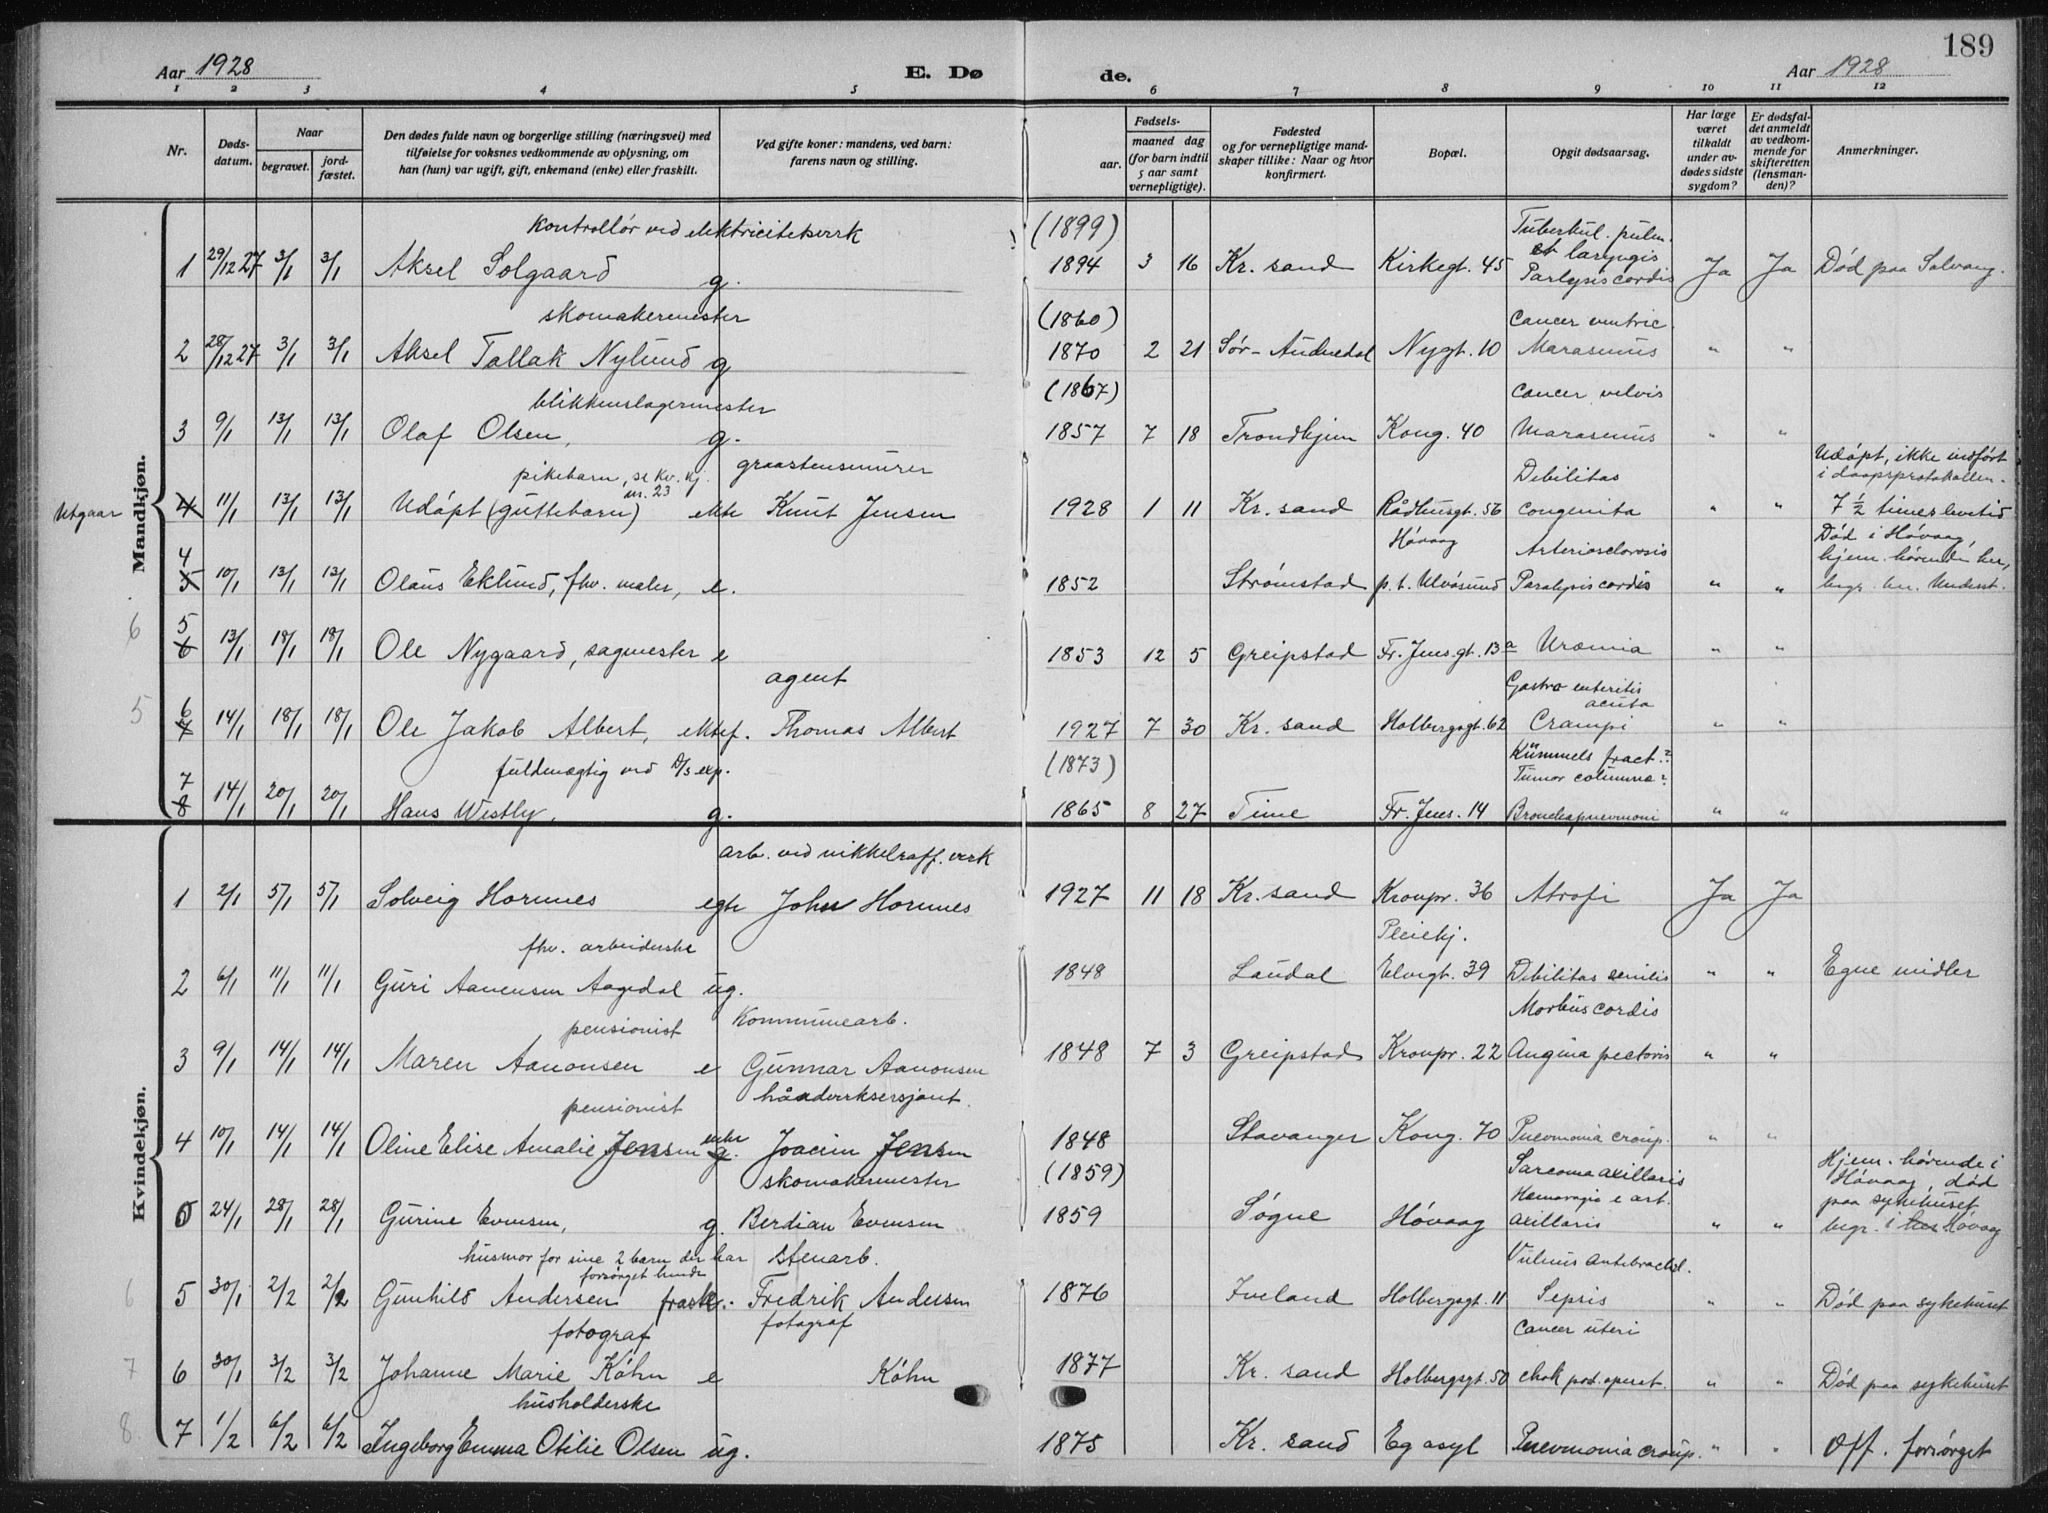 189
Aar 1928
E. Dø
de.
Aar 1928
1 2 3 4 5 6 7 8 9 10 11 12
Nr.
Døds-
datum.
Naar
begravet.
jord-
fæstet.
Den dødes fulde navn og borgerlige stilling (næringsvei) med
tilføielse for voksnes vedkommende av oplysning, om
han (hun) var ugift, gift, enkemand (enke) eller fraskilt.
Ved gifte koner: mandens, ved barn:
farens navn og stilling.
Fødsels-
aar.
maaned dag
(for barn indtil
5 aar samt
vernepligtige).
Fødested
og for vernepligtige mand-
skaper tillike: Naar og hvor
konfirmert.
Bopæl.
Opgit dødsaarsag.
Har læge
været
tilkaldt
under av-
dødes sidste
sygdom?
Er dødsfal-
det anmeldt
av vedkom-
mende for
skifteretten
(lensman-
den)?
Anmerkninger.
Mandkjøn.
Kontrollør ved elektricitetsverk (1899) Tuberkul. pulm.
et laryngis
1 29/12 27 3/1 3/1 Aksel Solgaard g. 1894 3 16 Kr. sand Kirkegt. 45 Parlysis cordis Ja Ja Død paa Solvang.
skomakermester (1860) Cancer ventric.
2 28/12 27 3/1 3/1 Aksel Tallak Nylund g 1870 2 21 Sør-Audnedal Nygt. 10 Marasmus " "
blikkenslagermester (1867) Cancer pelvis
3 9/1 13/1 13/1 Olaf Olsen, g. 1857 7 18 Trondhjem Kong. 40 Marasmus " "
pikebarn, se Kv. kj. nr. 23 graastensmurer Debilitas Udøpt, ikke indført
i daapsprotokollen.
Utgaar 4 11/1 13/1 13/1 Udøpt (guttebarn) ekte Knut Jensen 1928 1 11 Kr. sand Rådhusgt. 56 Congenita " " 7 ½ timer levetid
Høvaag Arteriosclerosis Død i Høvaag,
hjem. hørende her,
4 5 10/1 13/1 13/1 Olaus Eklund, fhv. maler, e. 1852 Strømstad p. t. Ulvøsund Paralysis cordis " " begr. her. Underst.
6 5 6 13/1 18/1 18/1 Ole Nygaard, sagmester e 1853 12 5 Greipstad Fr. Jens. gt. 13a Uræmia " "
agent Gastro enteritis
acuta
5 6 7 14/1 18/1 18/1 Ole Jakob Albert, ektef. Thomas Albert 1927 7 30 Kr. sand Holbergsgt. 62 Crampi " "
fuldmægtig ved D/s exp. (1873) Kümmels fract.?
Tumor columna?
7 8 14/1 20/1 20/1 Hans Westly, g. 1865 8 27 Time Fr. Jens. 14 Bronchopneumoni " "
Kvindekjøn.
arb. ved nikkelraff. verk
1 2/1 5/1 5/1 Solveig Hornnes egte John Hornnes 1927 11 18 Kr. sand Kronpr. 36 Atrofi Ja Ja
fhv. arbeiderske Pleiehj.
2 6/1 11/1 11/1 Guri Aanensen Aagedal ug. 1848 Laudal Elvegt. 39 Debilitas senilis " " Egne midler
pensionist Kommunearb. Morbus cordis
3 9/1 14/1 14/1 Maren Aanonsen e Gunnar Aanonsen 1848 7 3 Greipstad Kronpr. 22 Angina pectoris " "
pensionist håndverksersjant.
4 10/1 14/1 14/1 Oline Elise Amalie Jensen enke g. Joacim Jensen 1848 Stavanger Kong. 70 Pneumonia croup. " "
skomakermester (1859) Sarcoma axillaris Hjem. hørende i
Hæmoragia e art. Høvaag, død
paa sykehuset
5 24/1 28/1 28/1 Gurine Evensen, g. Berdian Evensen 1859 Søgne Høvaag axillaris " " begr. i her Høvaag
husmor for sine 2 barn der har
forsørget hende stenarb. Vulnus antebrachel.
6 5 30/1 2/2 2/2 Gunhild Andersen frask. Fredrik Andersen 1876 Iveland Holbergsgt. 11 Sepsis " " Død paa sykehuset
fotograf fotograf Cancer uteri
7 6 30/1 3/2 3/2 Johanne Marie Køhn e Køhn 1877 Kr. sand Holbergsgt. 50 chok post operat. " " Død paa sykehuset
husholderske
8 7 1/2 6/2 6/2 Ingeborg Emma Otilie Olsen ug. 1875 Kr. sand Eg asyl Pneumonia croup. " " Off. forsørget